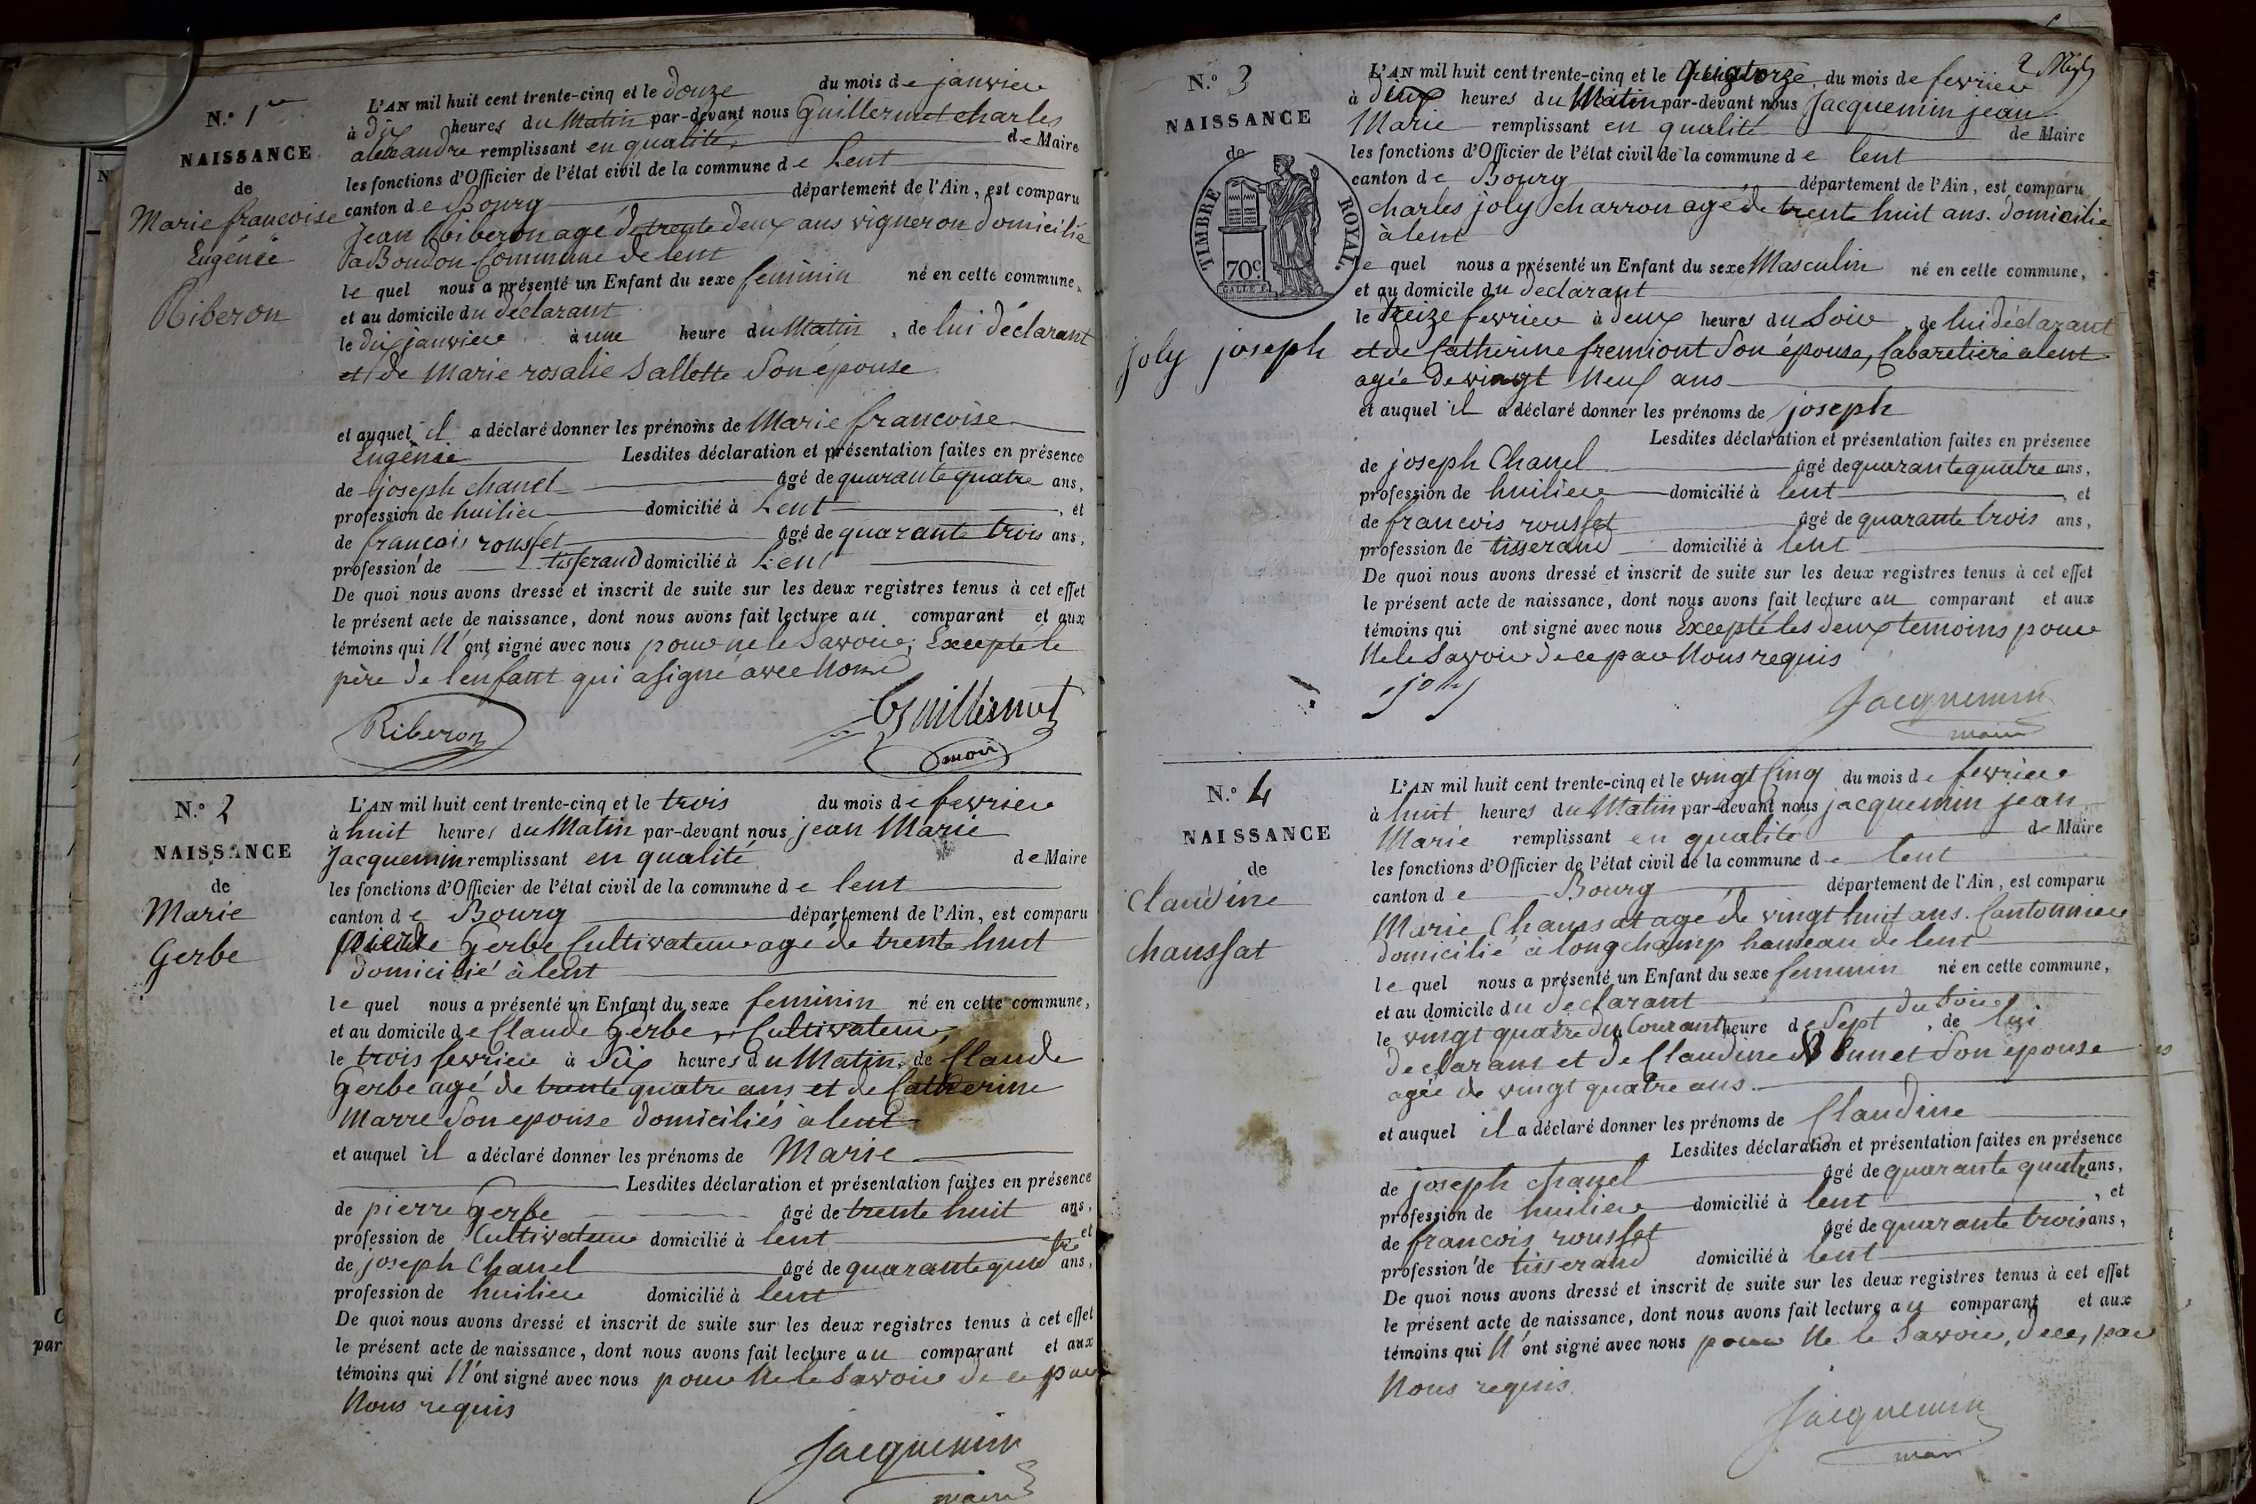 N.º 1er
NAISSANCE
de
Marie francoise
Eugénie
Riberon
L'AN mil huit cent trente-cinq et le douze du mois de janvier
à dix heures du Matin par-devant nous Guillermet charles
alexandre remplissant en qualité de Maire
les fonctions d'Officier de l'état civil de la commune de Lent
canton de Bourg département de l'Ain, est comparu
Jean Riberon agé de trente deux ans vigneron domicilié
a Boudon Commune de lent
le quel nous a présenté un Enfant du sexe feminin né en cette commune,
et au domicile du déclarant
le dix janvier à une heure du Matin, de lui déclarant
et de Marie rosalie Sallette Son épouse
et auquel il a déclaré donner les prénoms de Marie francoise
Eugénie Lesdites déclaration et présentation faites en présence
de joseph chanel âgé de quarante quatre ans,
profession de huilier domicilié à Lent, et
de françois rousset âgé de quarante trois ans,
profession de tisserand domicilié à Lent
De quoi nous avons dressé et inscrit de suite sur les deux registres tenus à cet effet
le présent acte de naissance, dont nous avons fait lecture au comparant et aux
témoins qui N'ont signé avec nous pour ne le Savoir, Excepté le
père de l'enfant qui a signé avec Nous
Riberon Guillermet
N.º 2
NAISSANCE
de
Marie
Gerbe
L'AN mil huit cent trente-cinq et le trois du mois de fevrier
à huit heures du Matin par-devant nous jean Marie
Jacquemin remplissant en qualité de Maire
les fonctions d'Officier de l'état civil de la commune de lent
canton de Bourg département de l'Ain, est comparu
pierre Gerbe Cultivateur agé de trente huit
domicilié à lent
le quel nous a présenté un Enfant du sexe feminin né en cette commune,
et au domicile de Claude Gerbe, Cultivateur
le trois fevrier à Six heures du Matin, de Claude
Gerbe agé de trente quatre ans et de Catherine
Marre Son epouse domiciliés à lent
et auquel il a déclaré donner les prénoms de Marie
Lesdites déclaration et présentation faites en présence
de pierre Gerbe âgé de trente huit ans,
profession de Cultivateur domicilié à lent et
de joseph Chanel âgé de quarante quatre ans,
profession de huilier domicilié à lent
De quoi nous avons dressé et inscrit de suite sur les deux registres tenus à cet effet
le présent acte de naissance, dont nous avons fait lecture au comparant et aux
témoins qui N'ont signé avec nous pour Ne le Savoir de ce par
Nous requis
Jacquemin
maire
2
N.º 3
NAISSANCE
de
TIMBRE ROYAL.
70c
joly joseph
L'AN mil huit cent trente-cinq et le quatorze du mois de fevrier
à dix heures du Matin par-devant nous Jacquemin jean
Marie remplissant en qualité de Maire
les fonctions d'Officier de l'état civil de la commune de lent
canton de Bourg département de l'Ain, est comparu
Charles joly Charron agé de trente huit ans. domicilié
à lent
le quel nous a présenté un Enfant du sexe Masculin né en cette commune,
et au domicile du declarant
le treize fevrier à deux heures du Soir, de lui déclarant
et de Catherine fremiont Son épouse, Cabaretiere a lent
agée de vingt Neuf ans
et auquel il a déclaré donner les prénoms de joseph
Lesdites déclaration et présentation faites en présence
de joseph Chanel âgé de quarante quatre ans,
profession de huilier domicilié à lent, et
de francois rousset âgé de quarante trois ans,
profession de tisserand domicilié à lent
De quoi nous avons dressé et inscrit de suite sur les deux registres tenus à cet effet
le présent acte de naissance, dont nous avons fait lecture au comparant et aux
témoins qui ont signé avec nous Excepté les deux temoins pour
Ne le Savoir de ce par Nous requis
joly Jacquemin
maire
N.º 4
NAISSANCE
de
Claudine
chaussat
L'AN mil huit cent trente-cinq et le vingt Cinq du mois de fevrier
à huit heures du Matin par-devant nous jacquemin jean
Marie remplissant en qualité de Maire
les fonctions d'Officier de l'état civil de la commune de lent
canton de Bourg département de l'Ain, est comparu
Marie Chaussat agé de vingt huit ans. Cantonnier
domicilié à longchamp hameau de lent
le quel nous a présenté un Enfant du sexe feminin né en cette commune,
et au domicile du declarant
le vingt quatre du Courant heure de Sept du Soir, de lui
declarant et de Claudine Son epouse
agée de vingt quatre ans
et auquel il a déclaré donner les prénoms de Claudine
Lesdites déclaration et présentation faites en présence
de joseph chanel âgé de quarante quatre ans,
profession de huilier domicilié à lent, et
de francois rousset âgé de quarante trois ans,
profession de tisserand domicilié à lent
De quoi nous avons dressé et inscrit de suite sur les deux registres tenus à cet effet
le présent acte de naissance, dont nous avons fait lecture au comparant et aux
témoins qui N'ont signé avec nous pour Ne le Savoir, de ce, par
Nous requis
Jacquemin